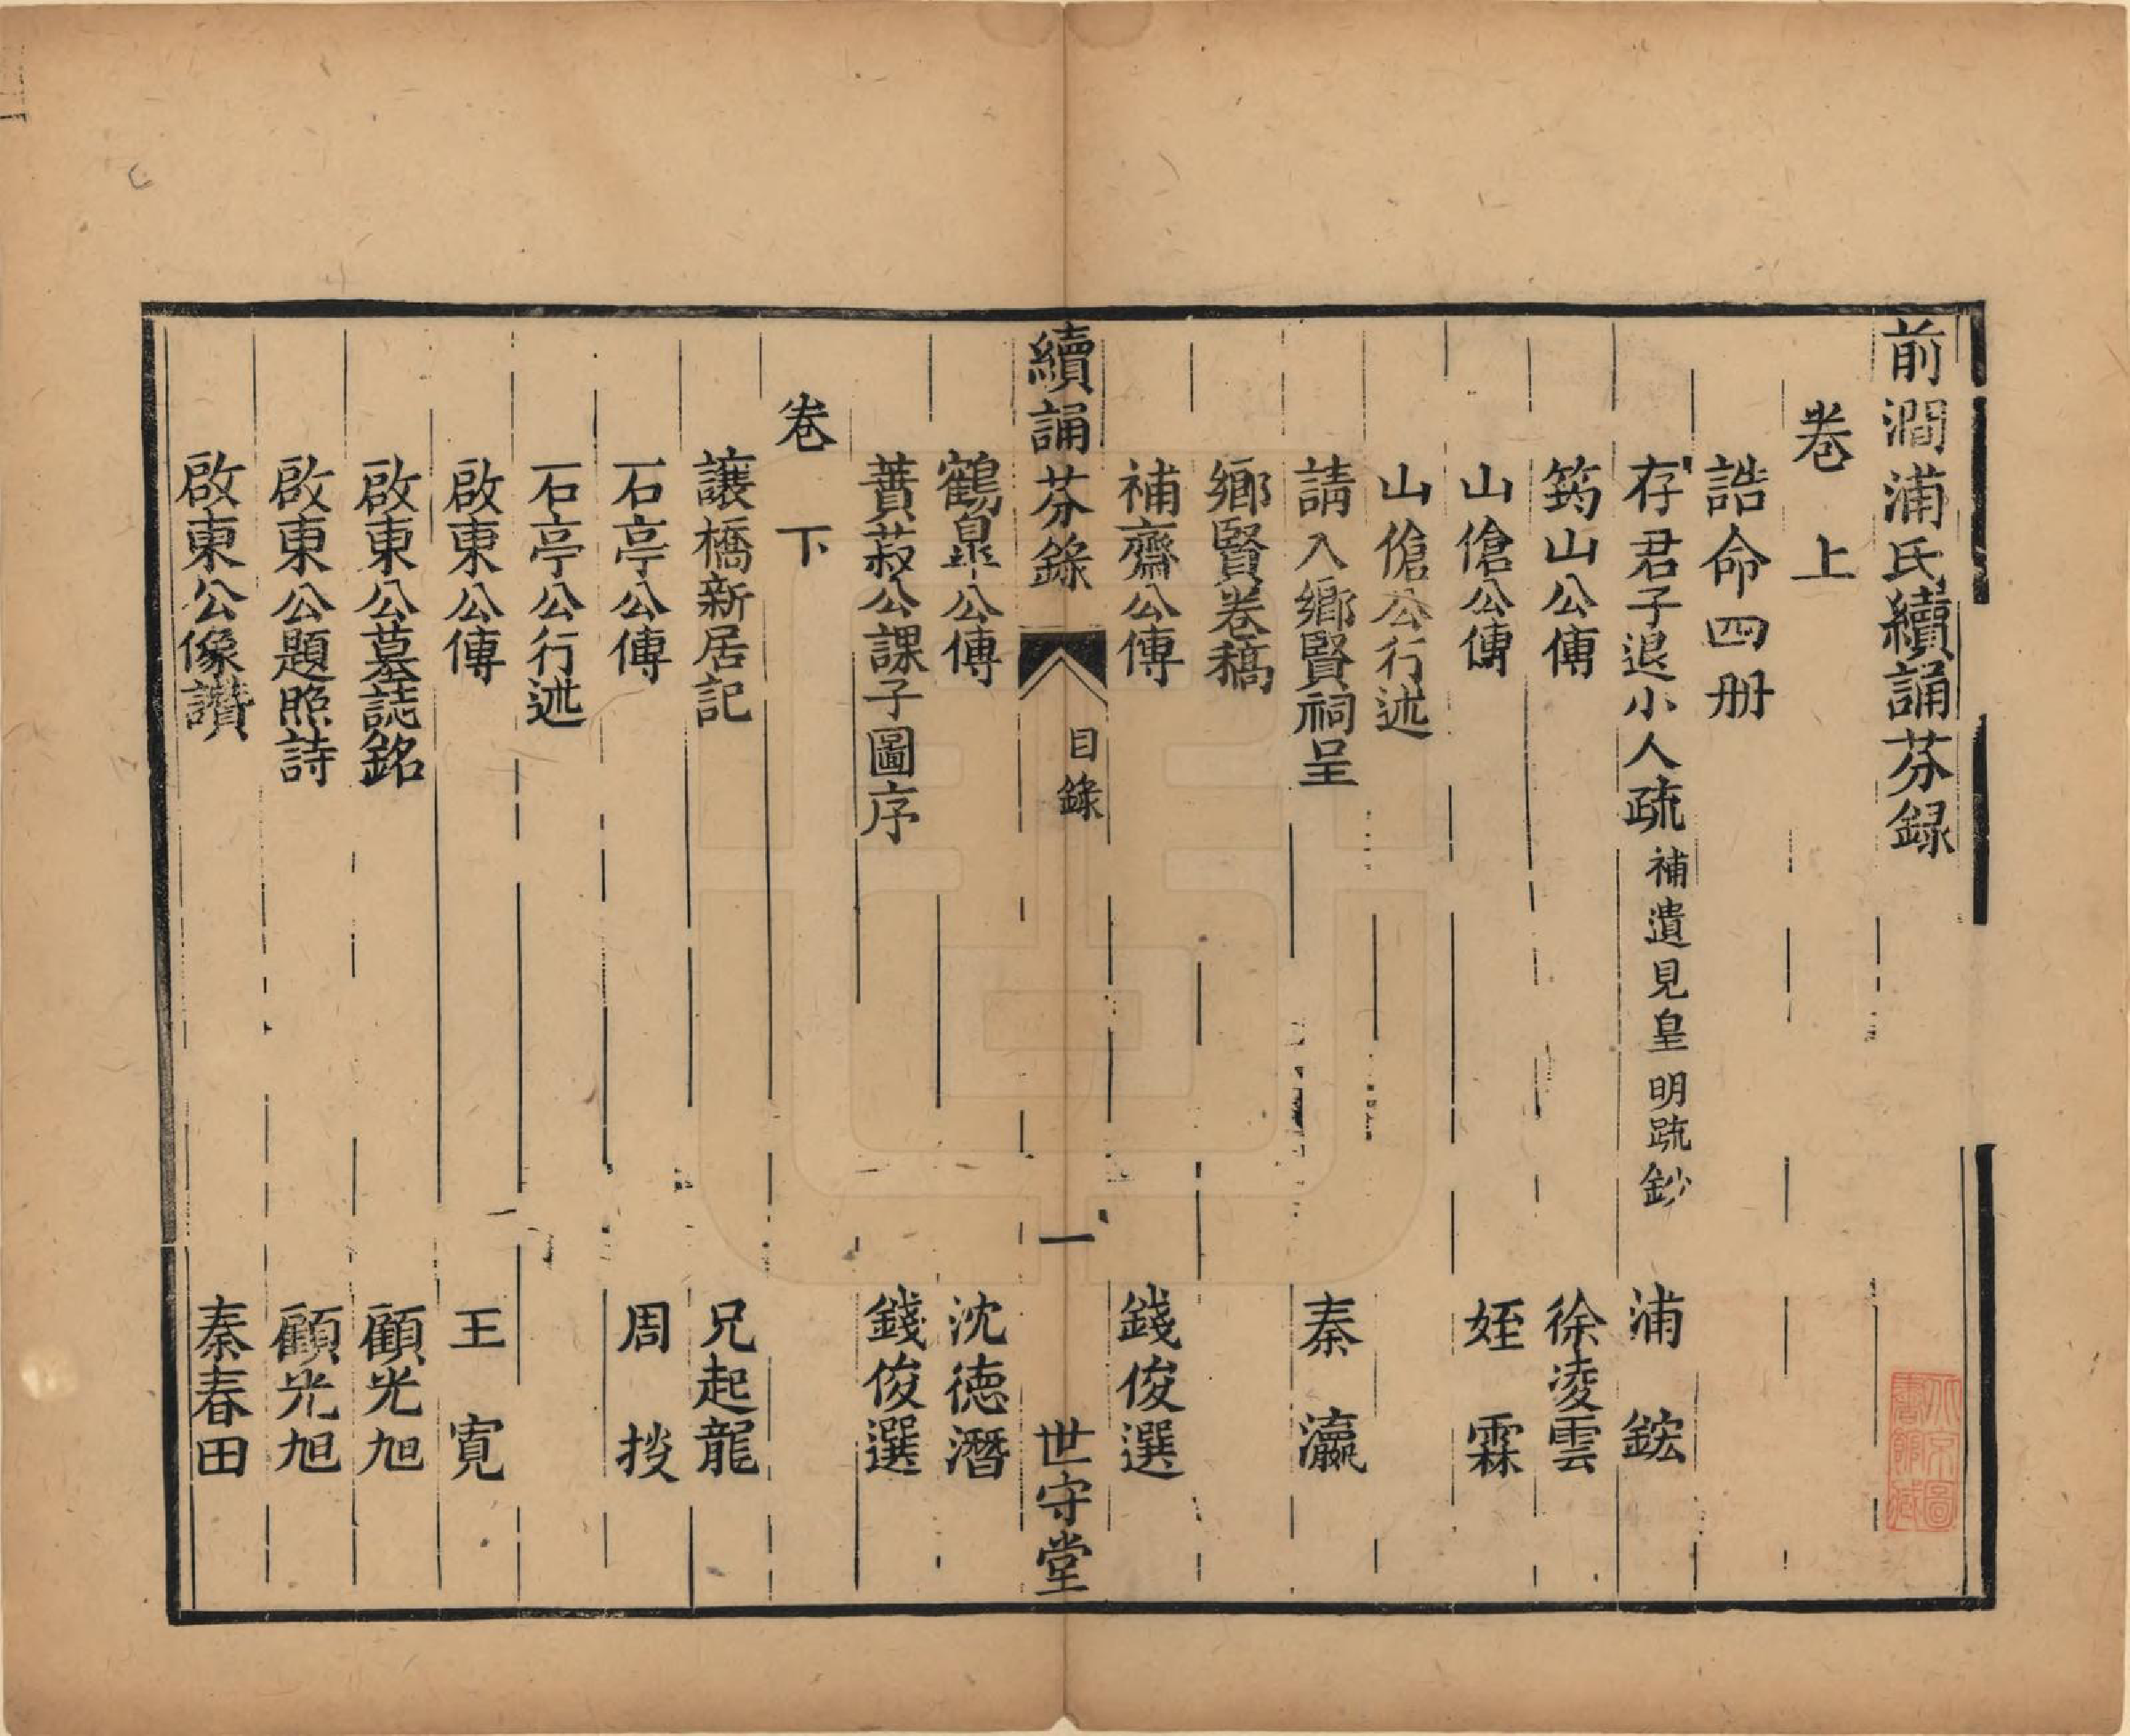 前澗浦氏續誦芬録
卷上
誥命四册
存君子退小人疏 補遺見皇明疏鈔 浦鋐
筠山公傳 徐凌雲
山傖公傳 姪霖
山傖公行述
請入鄉賢祠呈 秦瀛
鄉賢卷稿
補齋公傳 錢俊選
續誦芬錄 目錄 一 世守堂
鶴皐公傳 沈德潛
蕡菽公課子圖序 錢俊選
卷下
讓橋新居記 兄起龍
石亭公傳 周拔
石亭公行述
啟東公傳 王寬
啟東公墓誌銘 顧光旭
啟東公題照詩 顧光旭
啟東公像讚 秦春田
北京圖書館藏